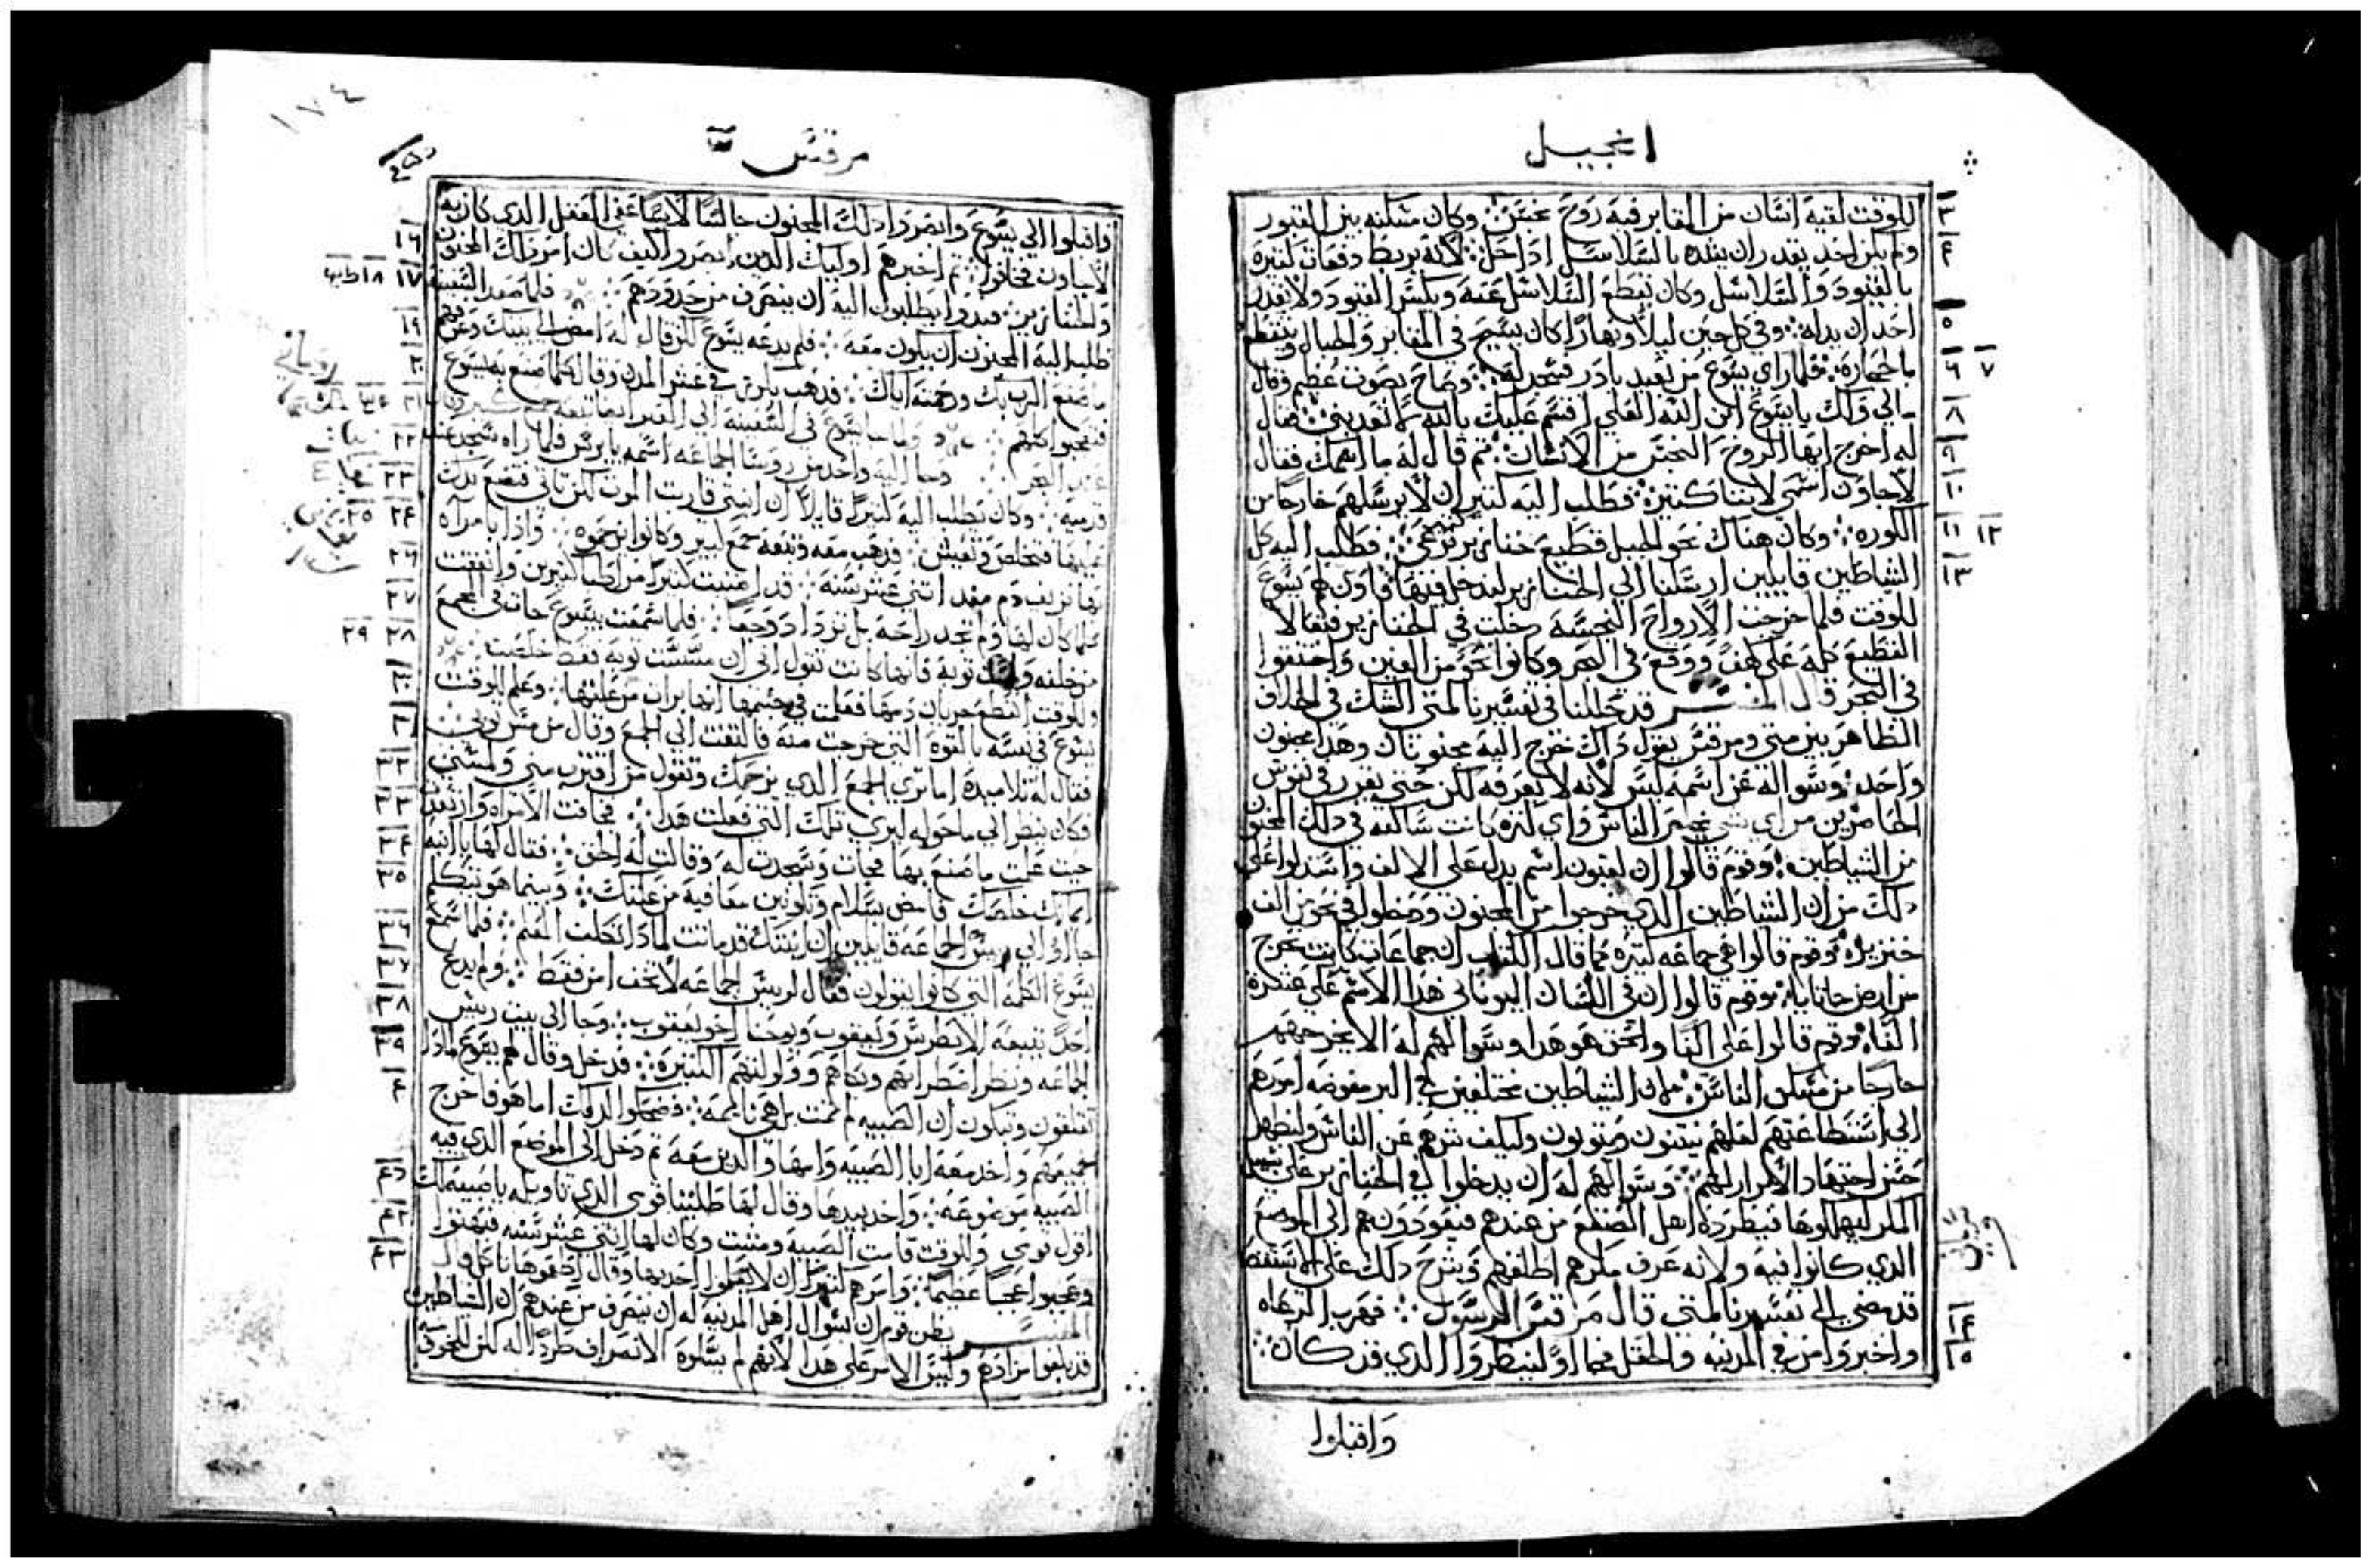 انجيل
للوقت لقيه انسان من المقابر فيه روح نجس وكان مسكنه بين القبور
ولم يكن احد يقدر ان يشده بالسلاسل اذا حل لانه يربط دفعات كثيره
بالقيود والسلاسل وكان يقطع السلاسل عنه ويكسر القيود ولا يقدر
احد ان يدله وفي كل حين ليلا ونهارا كان يسيح في المقابر والجبال ويتقطع
بالحجاره فلما راي يسوع من بعيد بادر فسجد له وصاح بصوت عظيم وقال
مالي ولك يا يسوع ابن الله العلي اقسم عليك بالله لا تعذبني فقال
له اخرج ايها الروح النجس من الانسان ثم قال له ما اسمك فقال
لاجاون اسمي لاننا كثيره فطلب اليه كثير ان لا يرسلهم خارجا من
الكوره وكان هناك نحو الجبل قطيع خنازير كثير ترعي فطلب اليه كل
الشياطين قايلين ارسلنا الي الخنازير لندخل فيها فاذن لهم يسوع
للوقت فلما خرجت الارواح النجسه دخلت في الخنازير فتعالا
القطيع كله على كهف ووقع في البحر وكانوا نحو من الفين واختنقوا
في البحر قال المفسر قد حللنا في تفسيرنا لمتى الشك في الخلاف
الظاهر بين متى ومرقس بقول ذاك خرج اليه مجنونان وهذا مجنون
واحد وسواله عن اسمه ليس لانه لا يعرفه لكن حتى يقرر في نفوس
الحاضرين من اي شي الناس واي كثره كانت ساكنه في ذلك المجنون
من الشياطين وقوم قالوا ان لغيون اسم يدل على الالف واستدلوا على
ذلك من ان الشياطين الذي خرجوا من المجنون وحطوا في نحو من الف
خنزيرا وقوم قالوا هي جماعه كثيره كما قال الكتاب ان جماعات كانت تخرج
من ارض وقوم قالوا ان في اللسان اليوناني هذا الاسم على عشره
الفا وقوم قالوا على الفا والحق هو هذا وسوالهم له الا يخرجهم
خارجا من مسكن الناس الشياطين مختلفين في البر مفوضه امورهم
الي استطاعتهم لعلهم يثنون ويتوبون وليكف شرهم عن الناس وليظهر
حسن اجتهاد الابرار لهم وسوالهم له ان يدخلوا في الخنازير على سبيل
المكر ليهلكوها فيطرده اهل الصقع من عندهم فيعودون هم الي الموضع
الذي كانوا فيه ولانه عرف مكرهم اطلقهم وشرح ذلك على الاستقصا
قد مضى في تفسيرنا لمتى قال مرقس الرسول فهرب الرعاه
واخبروا من في المدينه والحقل فجاوا لينظروا الذي قد كان
واقبلوا
٣
٤
٥
٦ ٧
٨
٩
١٠
١١ ١٢
١٣
١٤
١٥
١٧٤
مرقس
واقبلوا الي يسوع وابصروا ذلك المجنون جالسا لابسا عفيف العقل الذي كان به
لاجاون فخافوا ثم اخبرهم اوليك الذين ابصروا كيف كان امر ذاك المجنون
والخنازير فبدوا يطلبون اليه ان ينصرف من حدودهم فلما صعد السفينه
طلب اليه المجنون ان يكون معه فلم يدعه يسوع لكن قال له امض الي بيتك وعرفهم
ما صنع الرب بك ورحمته اياك فذهب ينادي في عشر المدن وقال كلما صنع به يسوع
فتعجبوا كلهم ولما جا يسوع في السفينه الي العبر ايضا تبعه جمع كثير
عند البحر وجا اليه واحد من روسا الجماعه اسمه يايرس فلما راه سجد عند
قدميه وكان يطلب اليه كثيرا قايلا ان ابنتي قاربت الموت لكن تاتي فتضع يدك
عليها فتخلص وتعيش فذهب معه وتبعه جمع كبير وكانوا يزحموه واذا بامراه
بها نزيف دم منذ اثني عشر سنه قد اعنيت كثيرا من اطبا كثيرين وانفقت
كلما كان لها ولم تجد راحه بل تزداد وجعا فلما سمعت بيسوع جات في الجمع
من خلفه ومست ثوبه فانها كانت تقول اني ان مسست ثوبه فقط خلصت
وللوقت انقطع جريان دمها فعلمت في جسمها انها برات من علتها وعلم للوقت
يسوع في نفسه بالقوه التي خرجت منه فالتفت الي الجمع وقال من مس ثوبي
فقال له تلاميذه اما ترى الجمع الذي يزحمك وتقول من اقترب مني ولمسني
فكان ينظر الي ما حوله ليري تلك التي فعلت هذا فخافت الامراه وارتعدت
حيث علمت ما صنع بها فجات وسجدت له وقالت له الحق فقال لها يا ابنه
ايمانك خلصك فامضي بسلام وتكونين معافيه من علتك وبينما هو يتكلم
جاوا الي رييس الجماعه قايلين ان ابنتك قد ماتت لماذا تكلف المعلم فلما سمع
يسوع الكلمه التي كانوا يقولون فقال لرييس الجماعه لا تخف امن فقط ولم يدع
احدا يتبعه الا بطرس ويعقوب ويوحنا اخو يعقوب وجا الي بيت رييس
الجماعه ونظر اضطرابهم وبكاهم وولولتهم الكثيره فدخل وقال لهم يسوع لماذا
تقلقون وتبكون ان الصبيه لم تمت بل هي نايمه فضحكوا اما هو فاخرج
جميعهم واخذ معه ابا الصبيه وامها والذين معه ثم دخل الي الموضع الذي فيه
الصبيه موضوعه واخذ بيدها وقال لها طليثا قومي الذي تاويله يا صبيه لك
اقول قومي وللوقت قامت الصبيه ومشت وكان لها اثني عشر سنه فبهتوا
وعجبوا عجبا عظيما وامرهم كثيرا ان لا يعلموا احد بهذا وقال اطعموها تاكل
المفسر يظن قوم ان سوال اهل المدينه له ان ينصرف من عندهم ان الشياطين
قد بلغوا مرادهم وليس الامر على هذا لانهم لم يسلوه الانصراف طردا له لكن للخوف
١٦
١٧ ١٨
١٩
٢٠
٢١
٢٢
٢٣
٢٤ ٢٥
٢٦
٢٧
٢٨ ٢٩
٣٠
٣١
٣٢
٣٣
٣٤
٣٥
٣٦
٣٧
٣٨
٣٩
٤٠
٤١
٤٢
٤٣